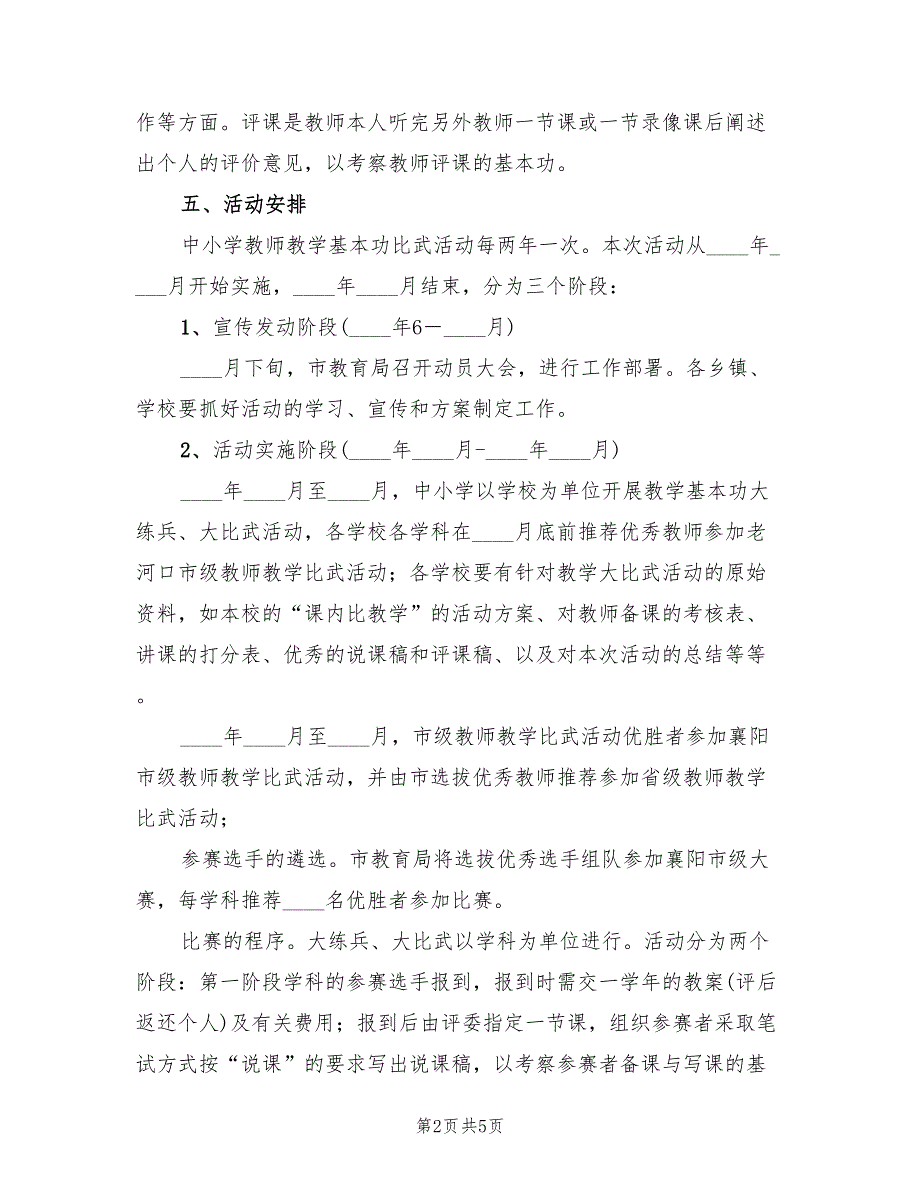 作等方面。评课是教师本人听完另外教师一节课或一节录像课后阐述
出个人的评价意见，以考察教师评课的基本功。
五、活动安排
中小学教师教学基本功比武活动每两年一次。本次活动从____年_
___月开始实施，____年____月结束，分为三个阶段：
1、宣传发动阶段(____年6－____月)
____月下旬，市教育局召开动员大会，进行工作部署。各乡镇、
学校要抓好活动的学习、宣传和方案制定工作。
2、活动实施阶段(____年____月-____年____月)
____年____月至____月，中小学以学校为单位开展教学基本功大
练兵、大比武活动，各学校各学科在____月底前推荐优秀教师参加老
河口市级教师教学比武活动；各学校要有针对教学大比武活动的原始
资料，如本校的“课内比教学”的活动方案、对教师备课的考核表、
讲课的打分表、优秀的说课稿和评课稿、以及对本次活动的总结等等
。
____年____月至____月，市级教师教学比武活动优胜者参加襄阳
市级教师教学比武活动，并由市选拔优秀教师推荐参加省级教师教学
比武活动；
参赛选手的遴选。市教育局将选拔优秀选手组队参加襄阳市级大
赛，每学科推荐____名优胜者参加比赛。
比赛的程序。大练兵、大比武以学科为单位进行。活动分为两个
阶段：第一阶段学科的参赛选手报到，报到时需交一学年的教案(评后
返还个人)及有关费用；报到后由评委指定一节课，组织参赛者采取笔
试方式按“说课”的要求写出说课稿，以考察参赛者备课与写课的基
第2页共5页